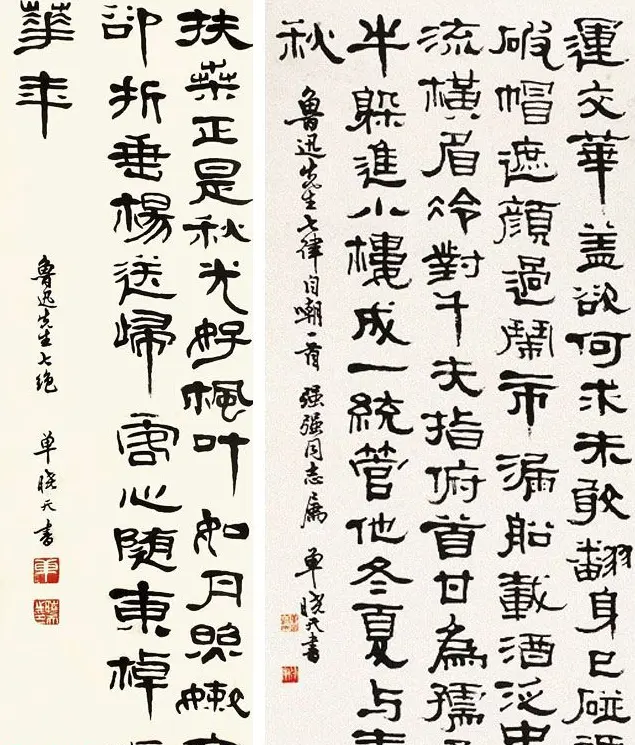 扶桒正是秋光好楓叶如丹照嫩
卻折垂楊送歸客心隨東棹
華年
魯迅先生七绝
单曉天書
運交華蓋欲何求未敢翻身已碰
破帽遮顏過鬧市漏船載酒泛中
流橫眉冷對千夫指俯首甘為孺
牛躲進小樓成一統管他冬夏与
秋
魯迅先生七律自嘲一首 强强同志属 单曉天書